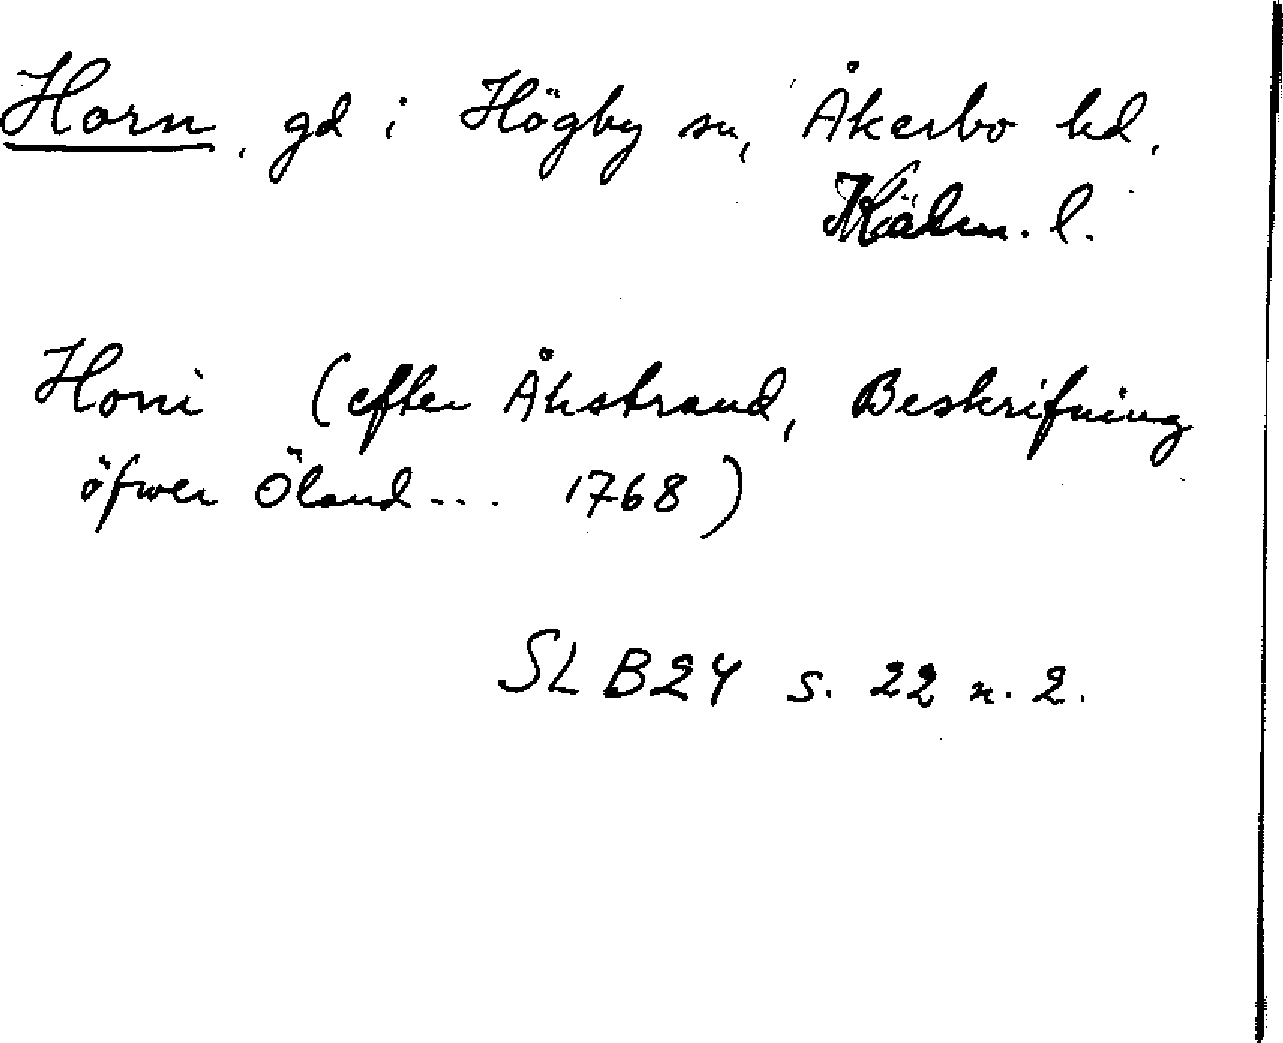 Horn, gd i Högby sn, Åkerbo hd,
Kalm. l.
Honi (efter Åhstrand, Beskrifning
öfwer Öland... 1768)
SL B24 s. 22 n. 2.